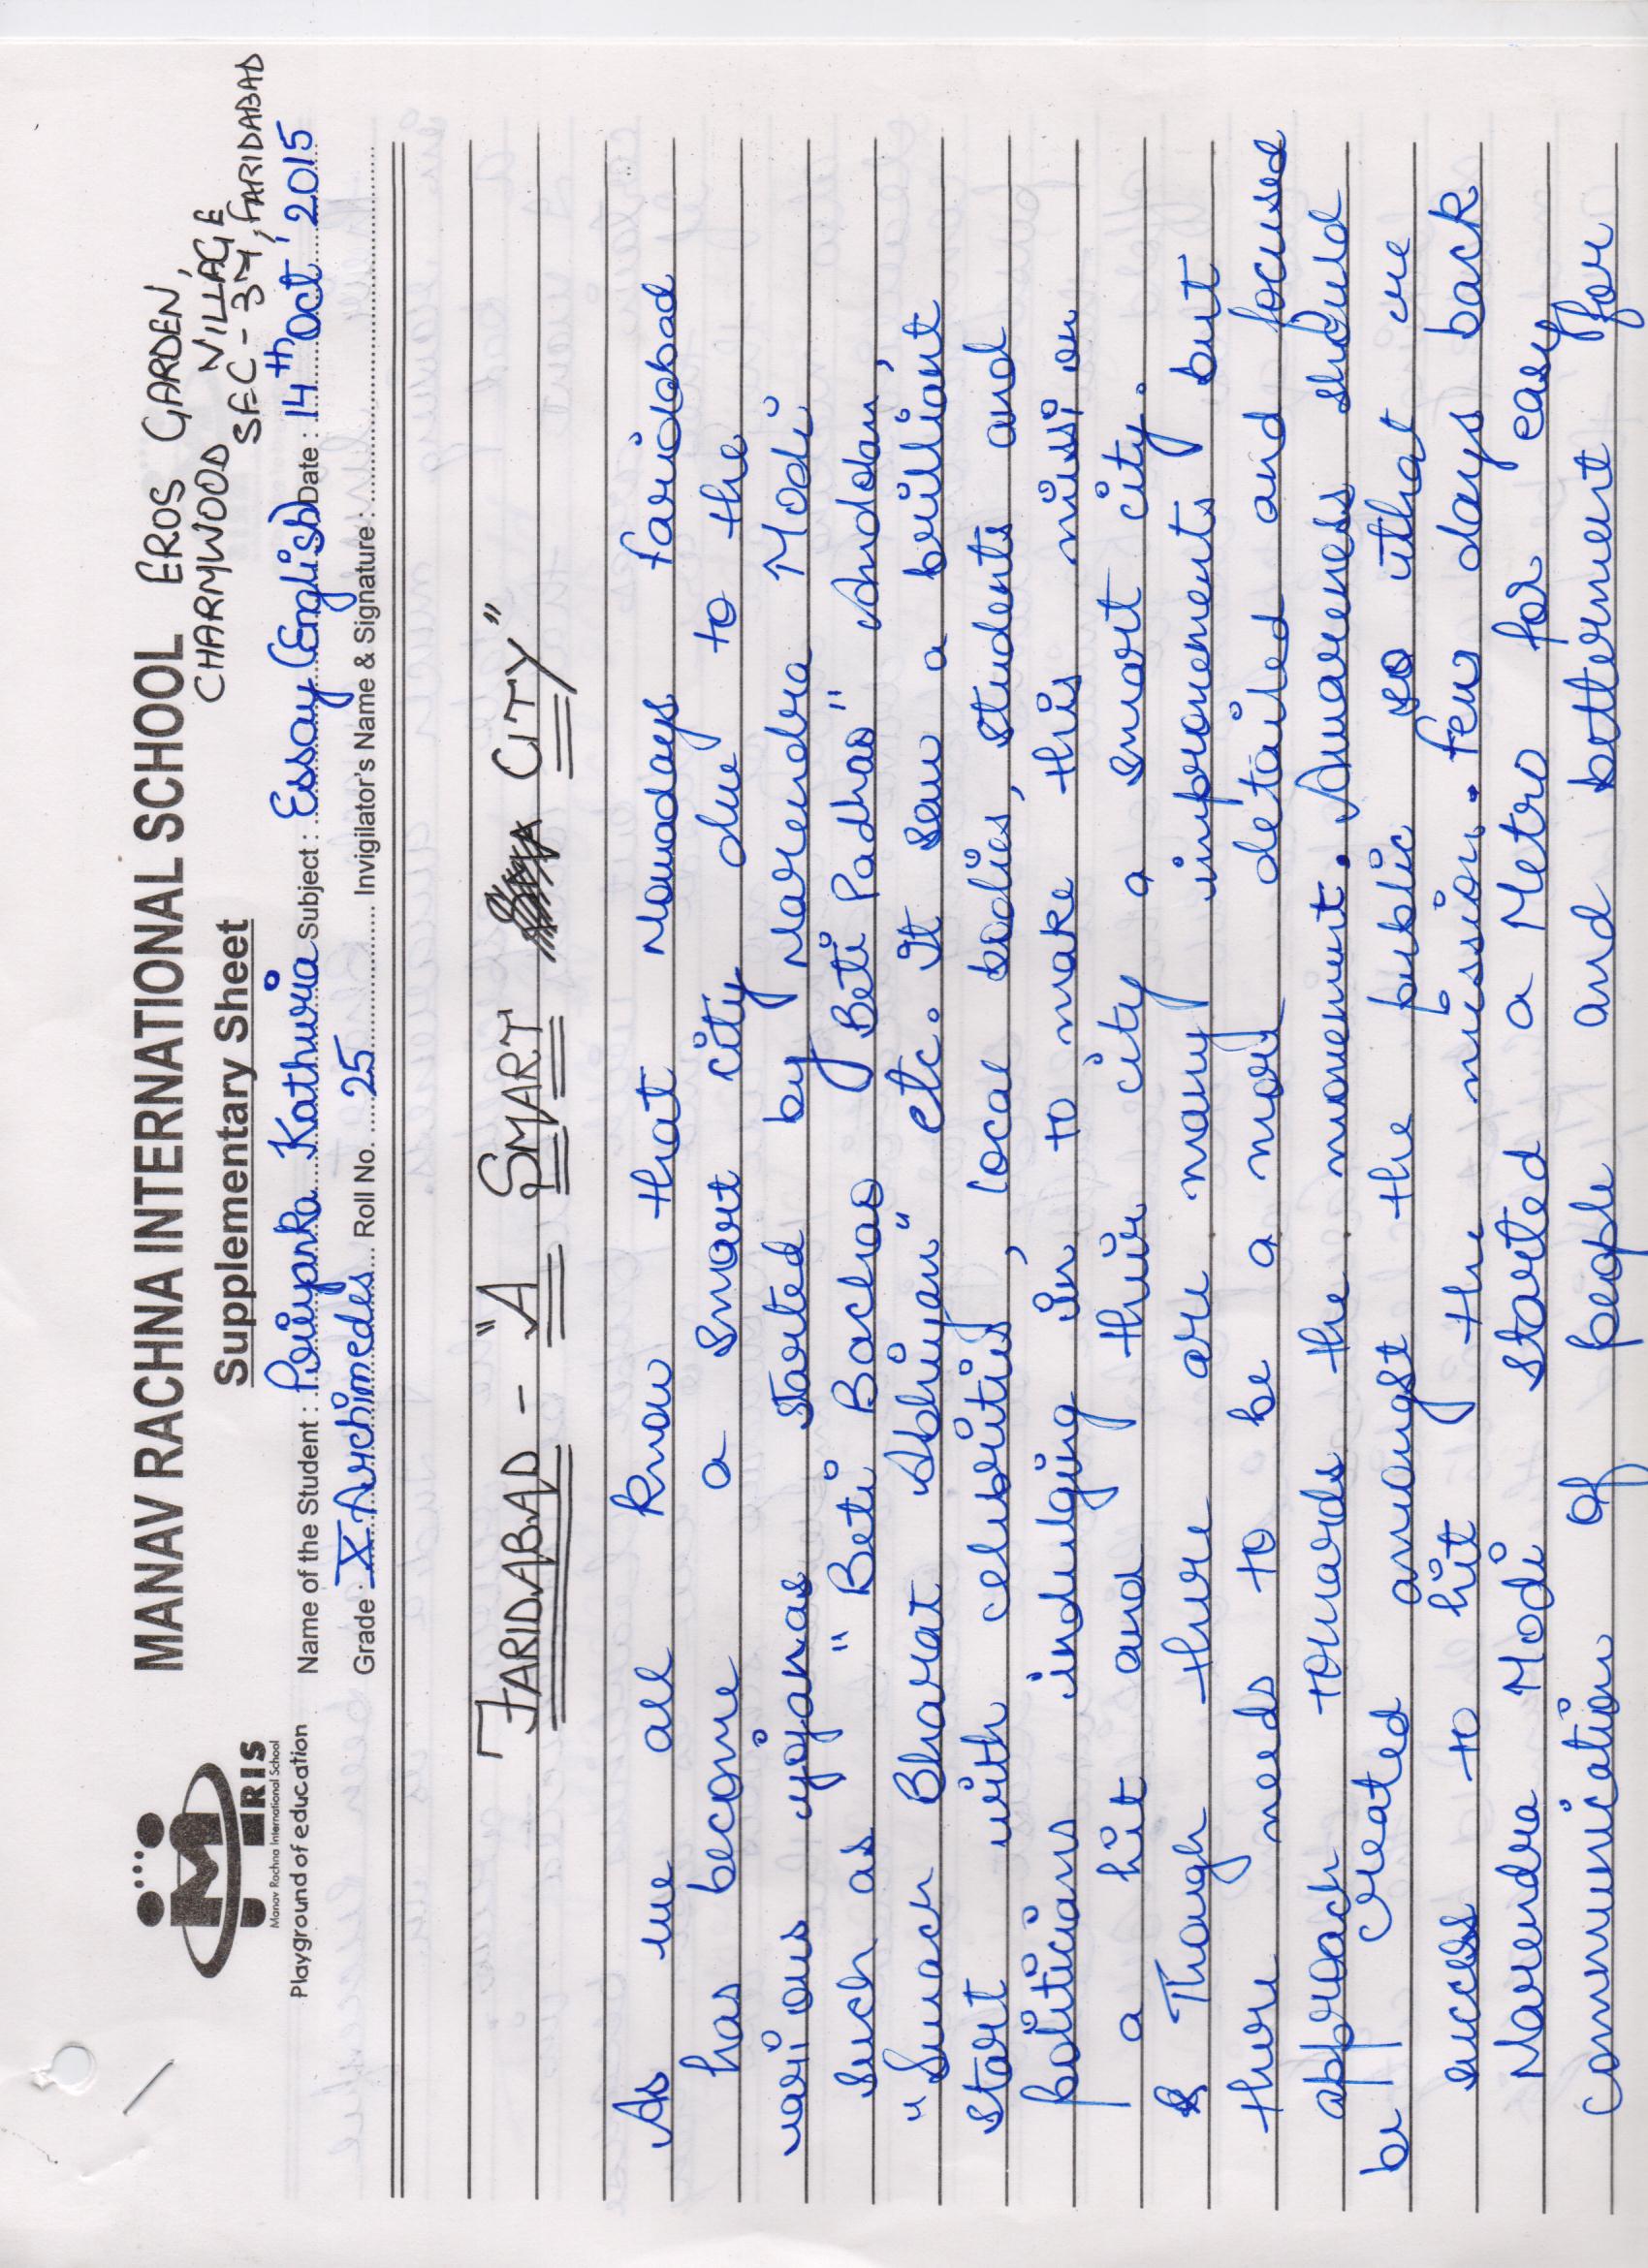 MRIS
Manav Rachna International School
Playground of education
MANAV RACHNA INTERNATIONAL SCHOOL EROS GARDEN,
CHARMWOOD VILLAGE
Supplementary Sheet SEC - 37, FARIDABAD
Name of the Student : Priyanka Kathuria Subject : Essay (English) Date : 14th Oct, 2015
Grade : X Archimedes Roll No. 25 Invigilator's Name & Signature :
FARIDABAD - "A SMART CITY"
As we all know that Nowadays faridabad
has become a smart city due to the
various yojanas started by Narendra Modi
such as "Beti Bachao Beti Padhao" Andolan,
"Swach Bharat Abhiyan" etc. It saw a brilliant
start with celebrities, local bodies, students and
politicians indulging in to make this mission
a hit and their city a smart city.
Though there are many improvements but
there needs to be a more detailed and focused
approach towards the movement. Awareness should
be created amongst the public so that we
succes to hit the mission. Few days back
Narendra Modi started a Metro for easy
communication of people and betterment for